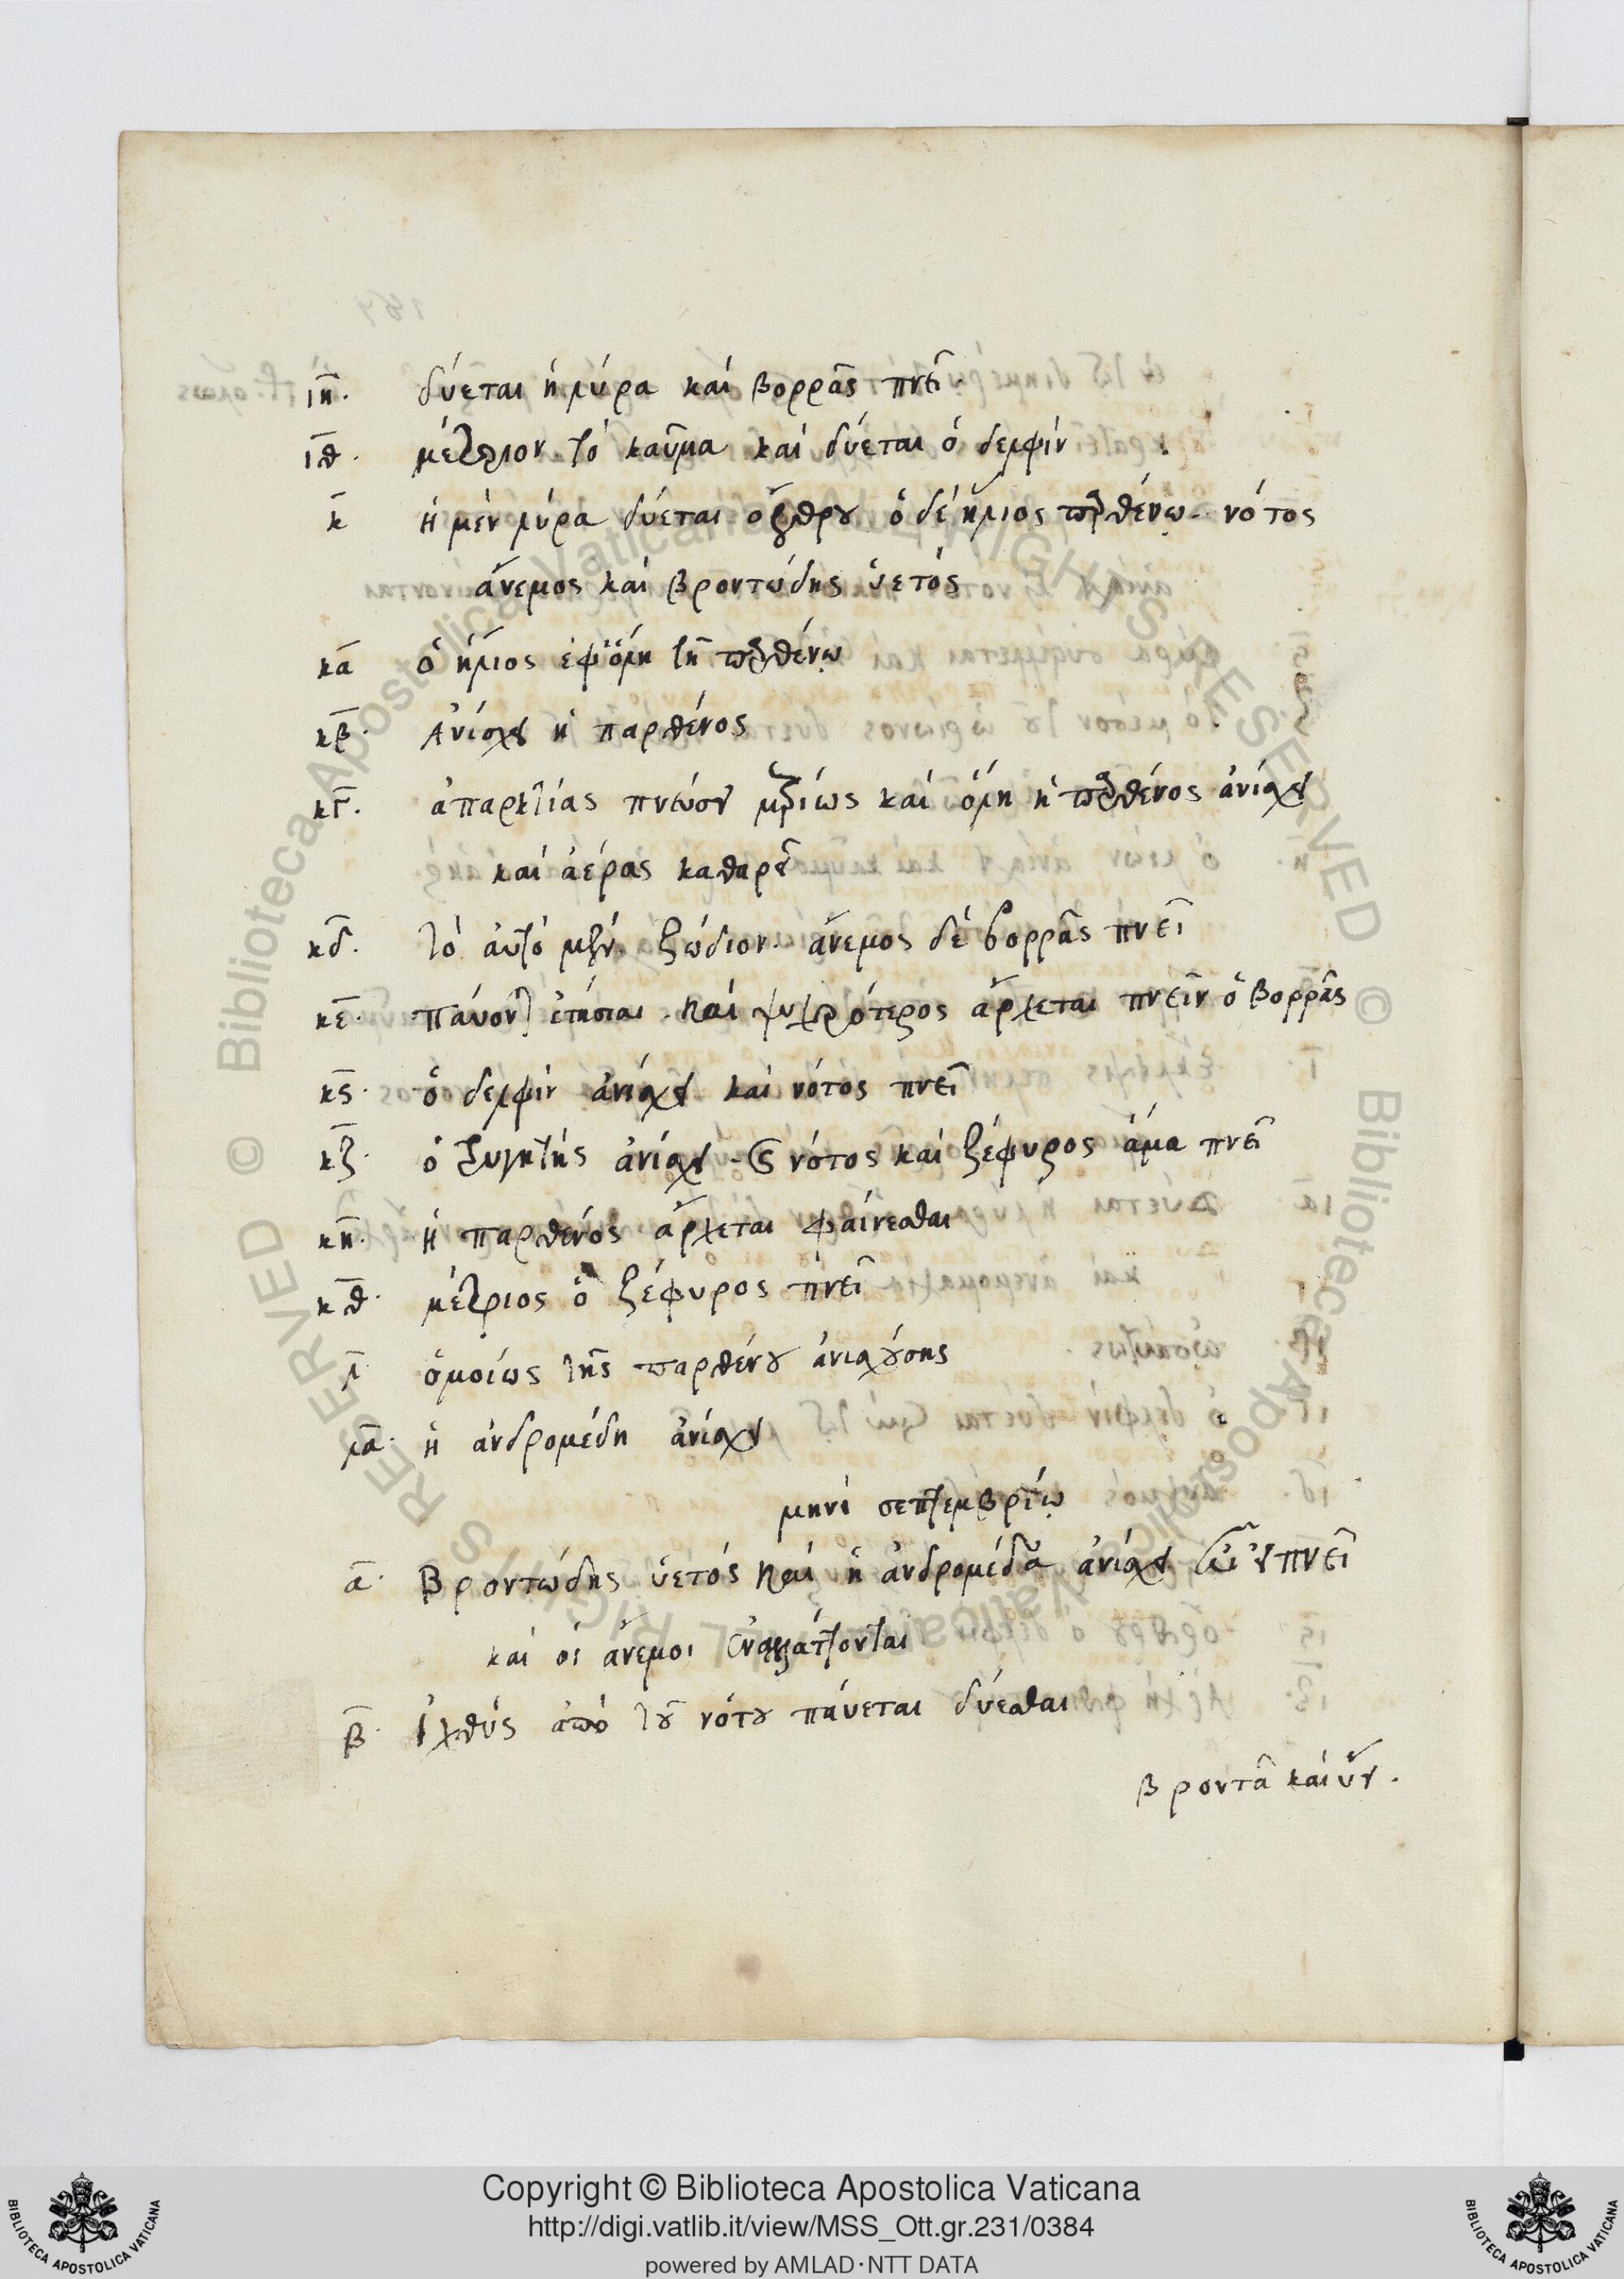 ιη. δύεται ἡ λύρα καὶ βορρᾶς πνεῖ
ιθ. μέτριον τὸ καῦμα καὶ δύεται ὁ δελφίν
κ ἡ μὲν λύρα δύεται ὄρθρου ὁ δὲ ἥλιος παρθένῳ. νότος
ἄνεμος καὶ βροντώδης ὑετός
κα ὁ ἥλιος ἐφ' ὅλη τῆ παρθένω
κβ. Ἀνίσχει ἡ παρθένος
κγ. ἀπαρκτίας πνεύσει μετρίως καὶ ὅλη ἡ παρθένος ἀνίσχει
καὶ ἀέρας καθαροῦ
κδ. τὸ αὐτὸ μὲν ζώδιον. ἄνεμος δὲ βορρᾶς πνεῖ
κε. παύονται ἐτήσιαι. καὶ ψυχρότερος ἄρχεται πνεῖν ὁ βορρᾶς
κς. ὁ δελφὶν ἀνίσχει καὶ νότος πνεῖ
κζ. ὁ τρυγητὴς ἀνίσχει - καὶ νότος καὶ ζέφυρος ἅμα πνεῖ
κη. ἡ παρθένος ἄρχεται φαίνεσθαι
κθ. μέτριος ὁ ζέφυρος πνεῖ
λ ὁμοίως τῆς παρθένου ἀνισχούσης
λα. ἡ ἀνδρομέδη ἀνίσχει
μηνὶ σεπτεμβρίῳ
α. Βροντώδης ὑετὸς καὶ ἡ ἀνδρομέδα ἀνίσχει πνεῖ
καὶ οἱ ἄνεμοι ἐναλλάττονται
β. Ἰχθὺς ἀπὸ τοῦ νότου παύεται δύεσθαι
βροντᾶ καὶ ὕει.
Copyright © Biblioteca Apostolica Vaticana
http://digi.vatlib.it/view/MSS_Ott.gr.231/0384
powered by AMLAD·NTT DATA
BIBLIOTECA APOSTOLICA VATICANA
BIBLIOTECA APOSTOLICA VATICANA